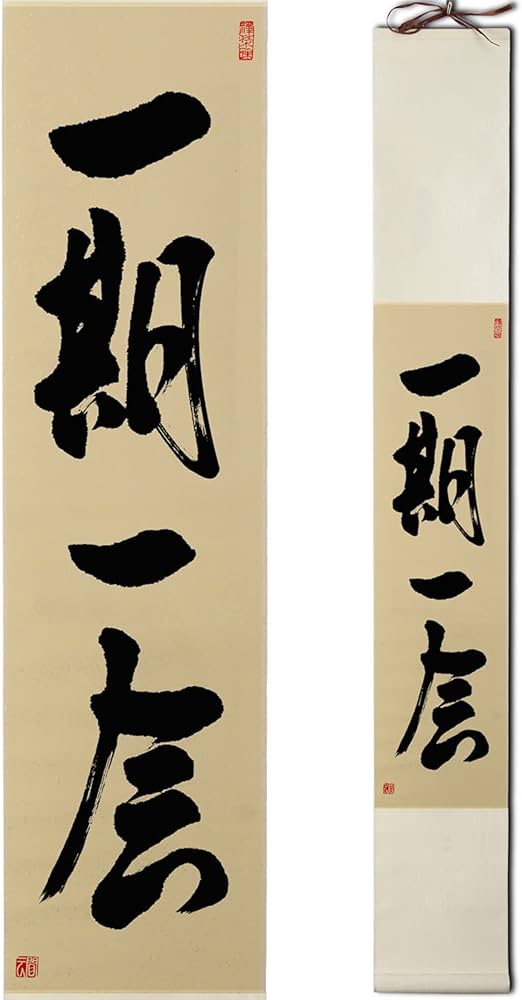 一期一会
一期一会